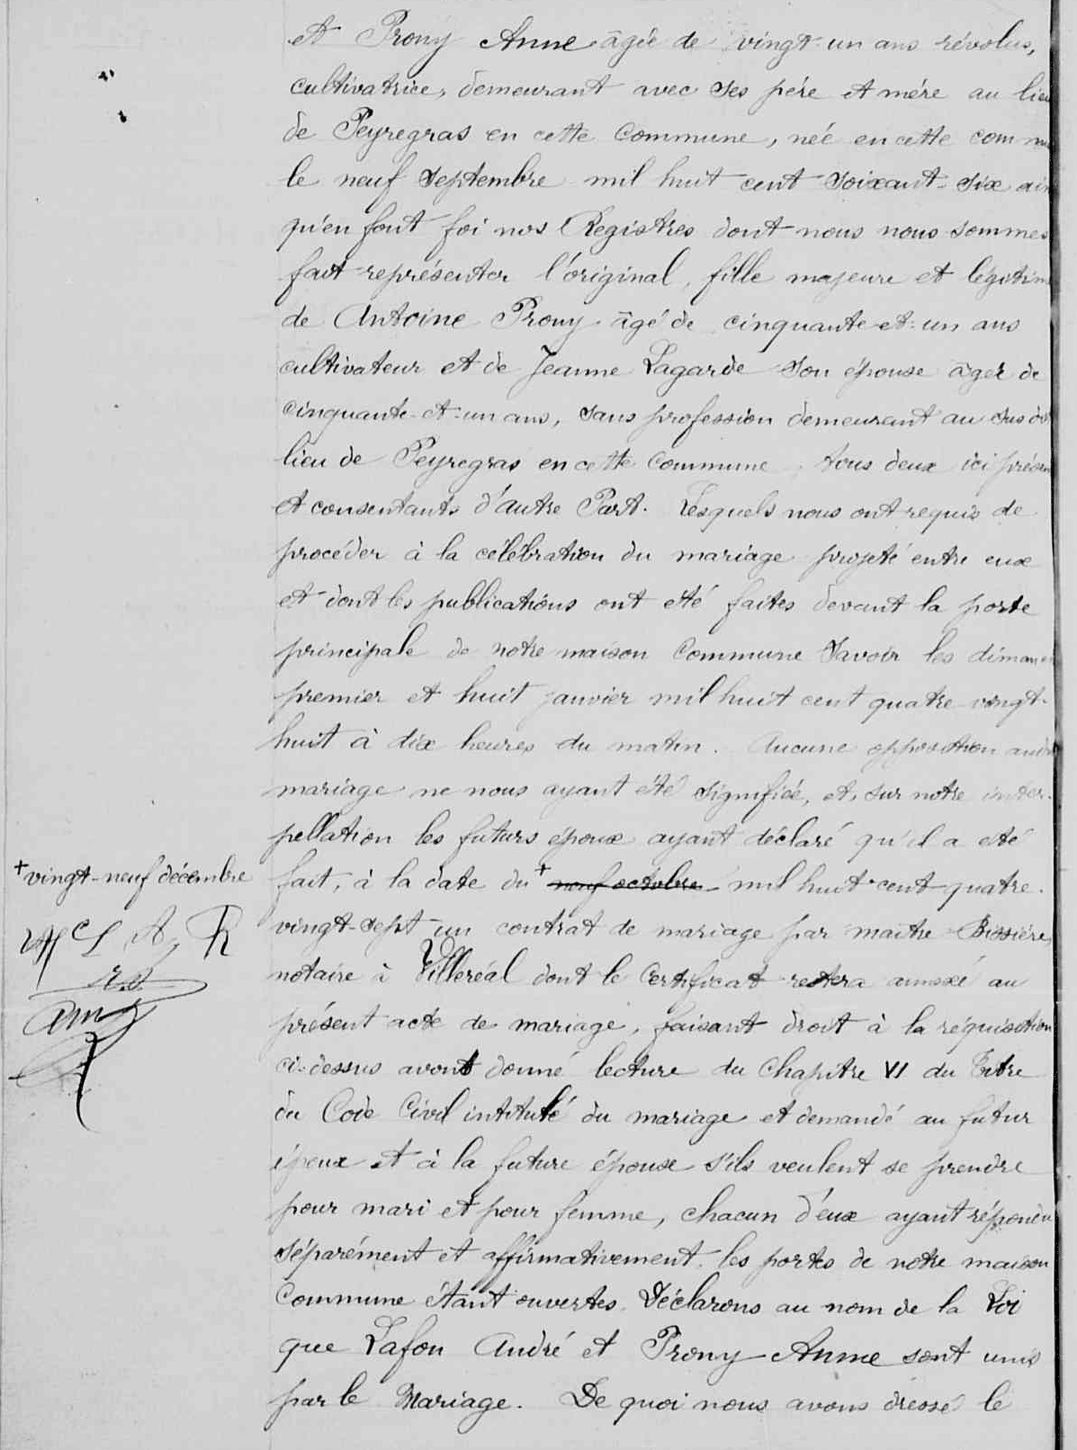 et Prony Anne âgée de vingt-un ans révolus,
cultivatrice, demeurant avec ses père et mère au lieu
de Peyregras en cette commune, née en cette comm
le neuf septembre mil huit cent soixant-six ain
qu'en font foi nos Registres dont nous nous sommes
fait représenter l'original, fille majeure et légitim
de Antoine Prony âgé de cinquante-et-un ans
cultivateur et de Jeanne Lagarde son épouse âgée de
cinquante-et-un ans, sans profession demeurant au susdit
lieu de Peyregras en cette commune tous deux ici présen
et consentants d'autre Part. Lesquels nous ont requis de
procéder à la célébration du mariage projeté entre eux
et dont les publications ont été faites devant la porte
principale de notre maison commune Savoir les diman
premier et huit janvier mil huit cent quatre-vingt-
huit à dix heures du matin. Aucune opposition audit
mariage ne nous ayant été signifiée, et, sur notre inter-
pellation les futurs époux ayant déclaré qu'il a été
+ vingt-neuf décembre
fait, à la date du + neuf octobre mil huit cent quatre-
vingt-sept un contrat de mariage par maitre Bissière
notaire à Villeréal dont le certificat restera annexé au
présent acte de mariage, faisant droit à la réquisition
ci-dessus avont donné lecture du chapitre VI du Titre
du Code Civil intitulé du mariage et demandé au futur
époux et à la future épouse s'ils veulent se prendre
pour mari et pour femme, chacun d'eux ayant répondu
séparément et affirmativement. les portes de notre maison
commune étant ouvertes Déclarons au nom de la Loi
que Lafon André et Prony Anne sont unis
par le Mariage. De quoi nous avons dressé le